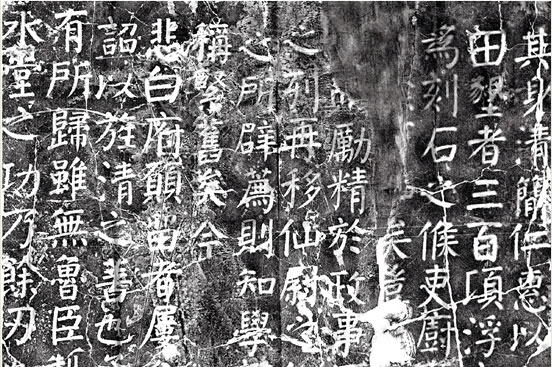 其身清簡仁惠以
田墾者三百頃浮
為刻石之條吏廚
矣豈
勵精於政事
之列再移仙尉之
之所辟薦則知學
稱繄舊矣今
悲白府顛留者屢
詔以旌清之善也
有所歸雖無魯臣
水之功乃餘刃